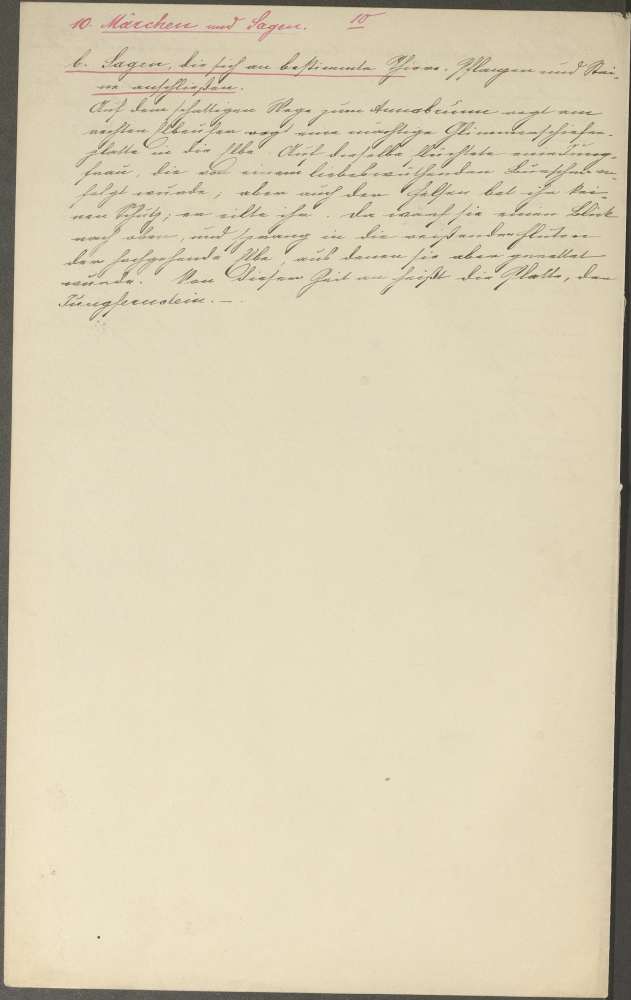 10. Märchen und Sagen. 10
b. Sagen, die sich an bestimmte Thiere, Pflanzen und Stei-
ne anschließen.
Auf dem schattigen Wege zum Annabrunn ragt am
rechten Elbeufer eine mächtige Glimmerschiefer-
platte in die Elbe. Auf dieselbe flüchtete eine Jung-
frau, die von einem liebeswüthenden Burschen ver-
folgt wurde; aber auch der Felsen bot ihr kei-
nen Schutz; er eilte ihr. Da warf sie einen Blick
nach oben, und sprang in die reißenden Fluten
der hochgehende Elbe, aus denen sie aber gerettet
wurde. Von dieser Zeit an heißt die Platte, der
Jungfernstein. –.